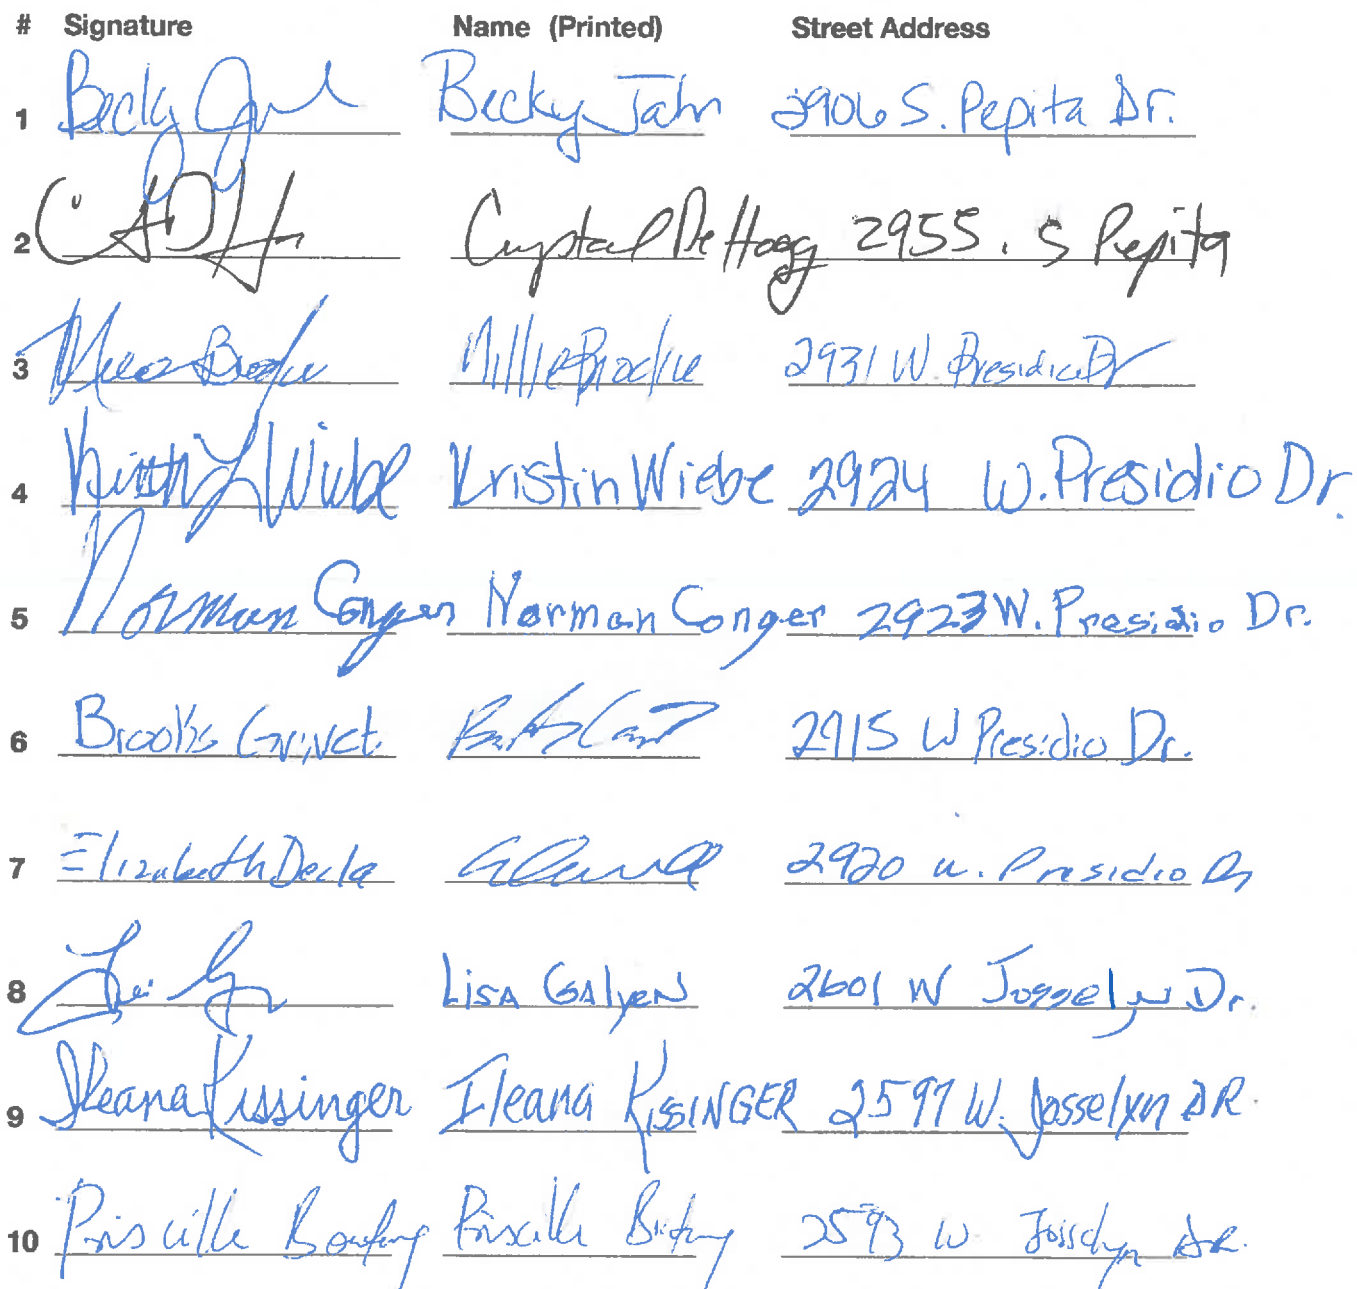 # Signature Name (Printed) Street Address
1 Becky Becky Jahn 2906 S. Pepita Dr.
2 Crystal DeHoog 2955 . S Pepita
3 Millie Brodie 2931 W. Presidio Dr
4 Kristin L Wiebe Kristin Wiebe 2924 W. Presidio Dr.
5 Norman Conger Norman Conger 2923 W. Presidio Dr.
6 Brooks 2915 W Presidio Dr.
7 Elizabeth 2920 W. Presidio Dr
8 Lisa Galyen 2601 W Josselyn Dr.
9 Ileana Kissinger Ileana KISSINGER 2597 W. Josselyn DR.
10 Priscilla Priscilla 2593 W Josselyn DR.